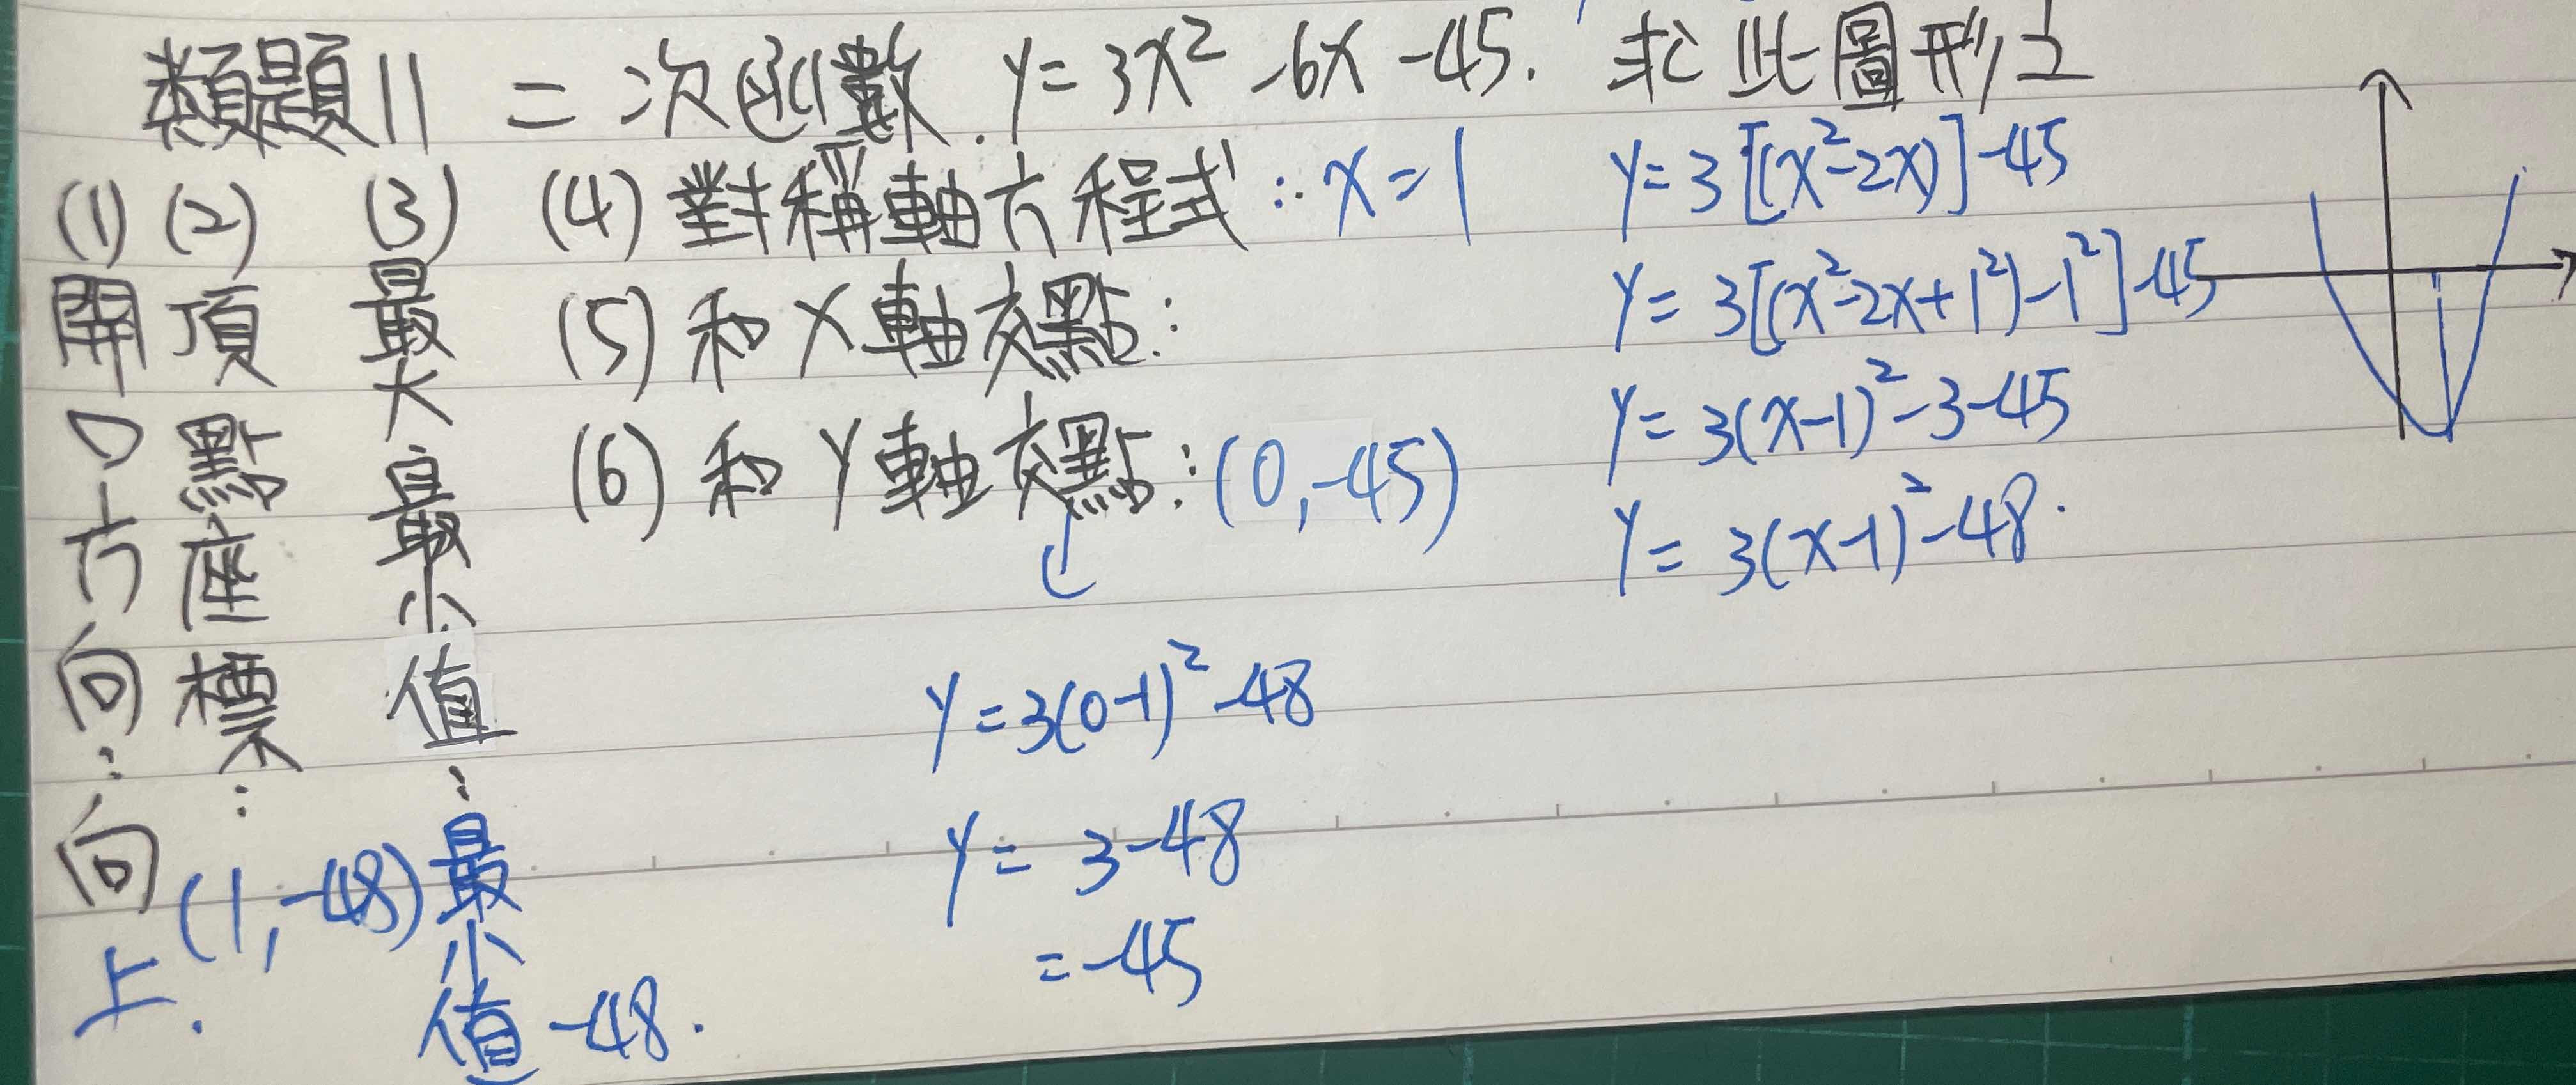 類題11 二次函數.y=3x²-6x-45. 求此圖形之
(1)開口方向:向上.
(2)頂點座標:(1,-48)
(3)最大最小值:最小值-48.
(4)對稱軸方程式:x=1
(5)和x軸交點:
(6)和y軸交點:(0,-45)
y=3(0-1)²-48
y=3-48
=-45
y=3[(x²-2x)]-45
y=3[(x²-2x+1²)-1²]-45
y=3(x-1)²-3-45
y=3(x-1)²-48.